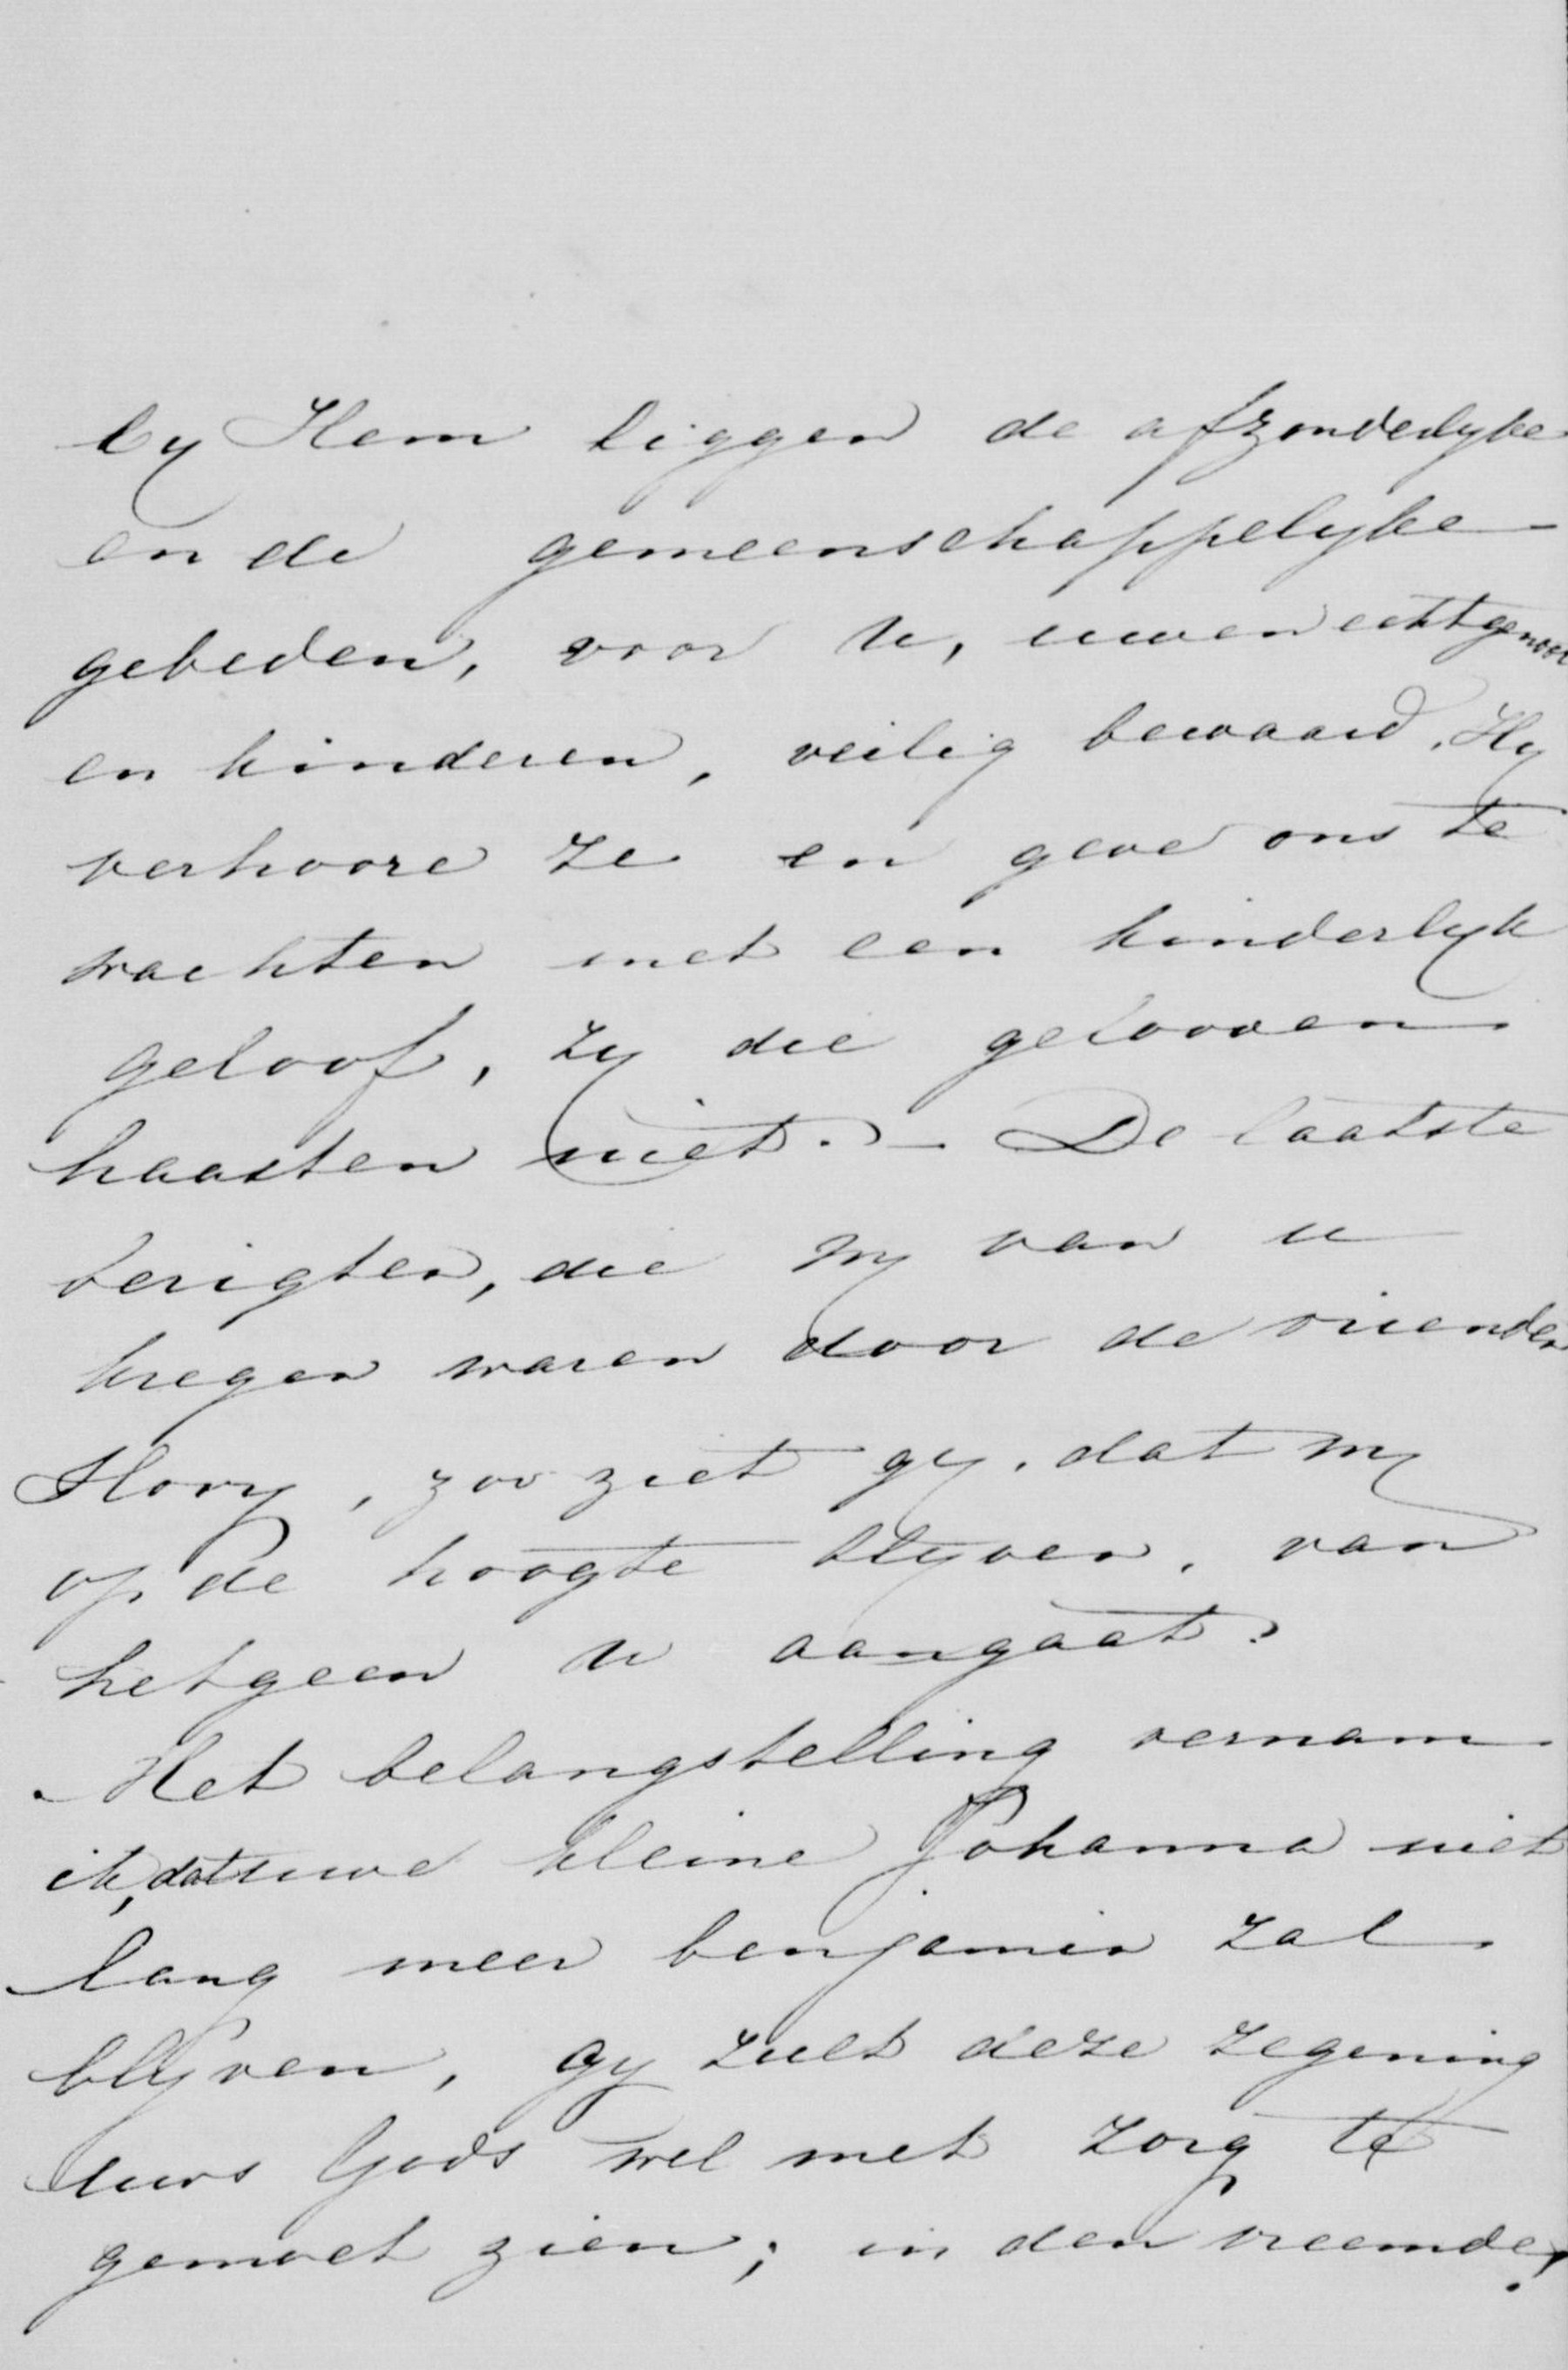 by Hem liggen de afzonderlyke
en de gemeenschappelyke
gebeden, voor u, uwen echtgenoot
en kinderen, veilig bewaard. Hy
verhoore ze en geve ons te
wachten met een kinderlyk
geloof, zy die gelooven
haasten niet. – De laatste
berigten, die wy van u
kregen waren door de vrienden
Hory, zoo ziet gy, dat wy
op de hoogte blyven, van
hetgeen u aangaat.
Met belangstelling vernam
ik, dat uwe kleine Johanna niet
lang meer benjamin zal
blyven, gy zult deze zegening
uws Gods wel met zorg te
gemoet zien; in den vreemde!